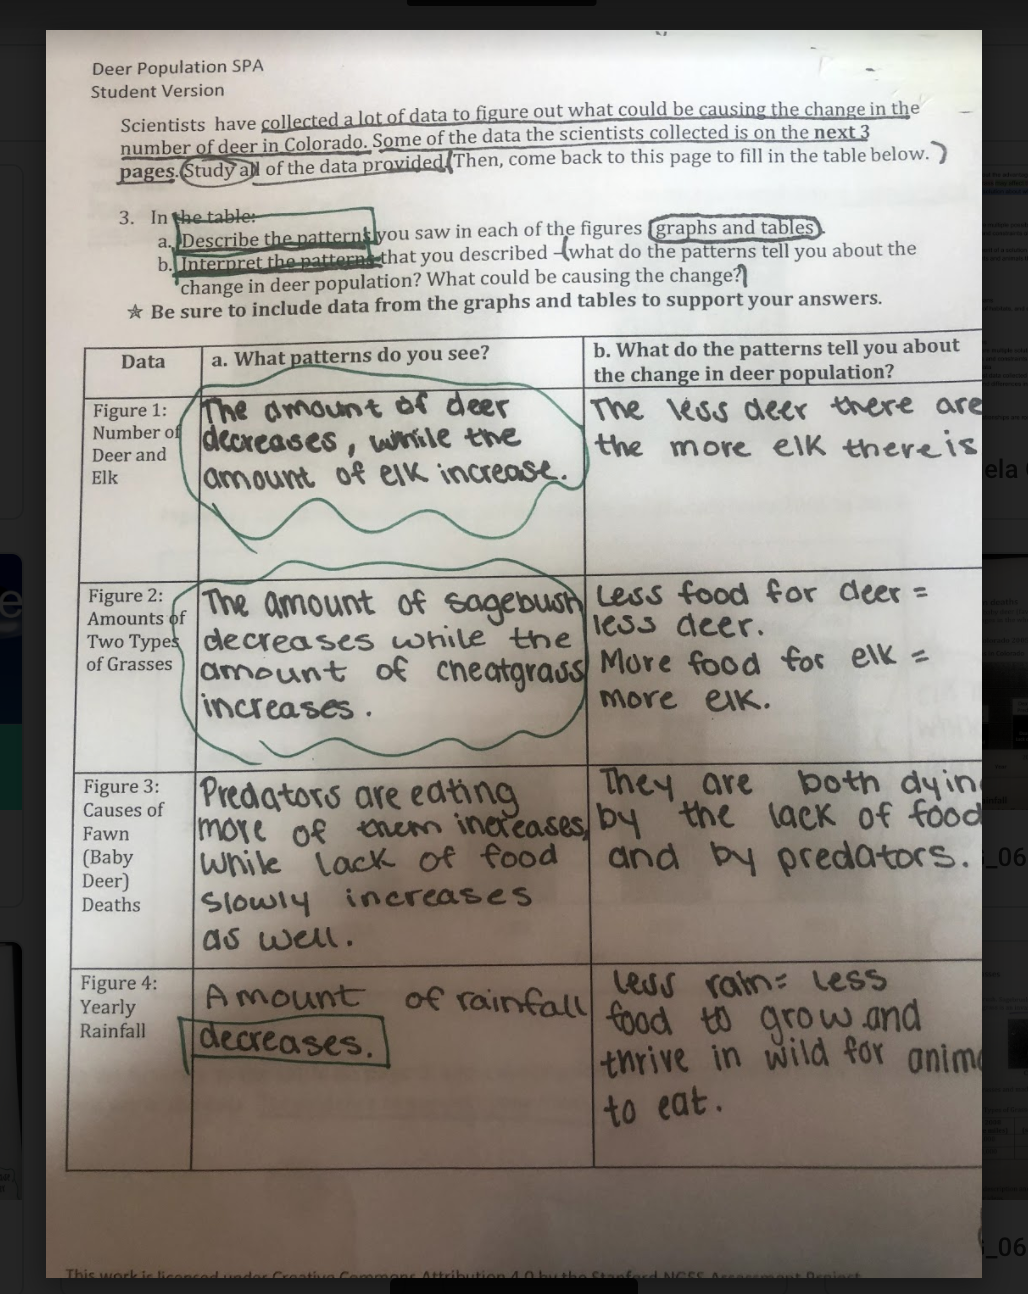 Deer Population SPA
Student Version
Scientists have collected a lot of data to figure out what could be causing the change in the
number of deer in Colorado. Some of the data the scientists collected is on the next 3
pages. Study all of the data provided. Then, come back to this page to fill in the table below.
3. In the table:
a. Describe the patterns you saw in each of the figures (graphs and tables).
b. Interpret the patterns that you described – what do the patterns tell you about the
change in deer population? What could be causing the change?
☆ Be sure to include data from the graphs and tables to support your answers.
Data
a. What patterns do you see?
b. What do the patterns tell you about
the change in deer population?
Figure 1:
Number of
Deer and
Elk
The amount of deer
decreases, while the
amount of elk increase.
The less deer there are
the more elk there is
Figure 2:
Amounts of
Two Types
of Grasses
The amount of sagebush
decreases while the
amount of cheatgrass
increases.
Less food for deer =
less deer.
More food for elk =
more elk.
Figure 3:
Causes of
Fawn
(Baby
Deer)
Deaths
Predators are eating
more of them increases,
while lack of food
slowly increases
as well.
They are both dyin
by the lack of food
and by predators.
Figure 4:
Yearly
Rainfall
Amount of rainfall
decreases.
less rain= less
food to grow and
thrive in wild for anim
to eat.
This work is licensed under Creative Commons Attribution 4.0 by the Stanford NGSS Assessment Project
ela
_06
_06